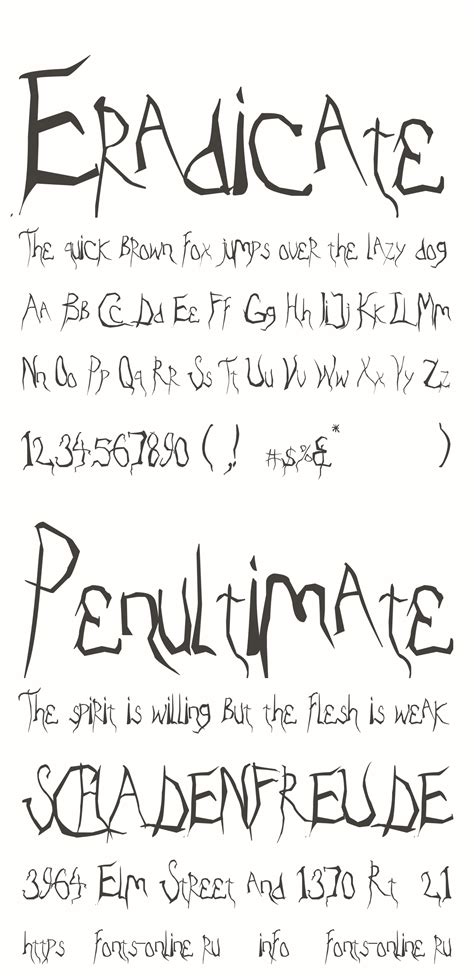 Eradicate
The quick brown fox jumps over the lazy dog
Aa Bb Cc Dd Ee Ff Gg Hh Ii Jj Kk Ll Mm
Nn Oo Pp Qq Rr Ss Tt Uu Vv Ww Xx Yy Zz
1234567890 (,! #$%&* )
Penultimate
The spirit is willing but the flesh is weak
SCHADENFREUDE
3964 Elm Street and 1370 Rt 21
https fonts-online ru info fonts-online ru